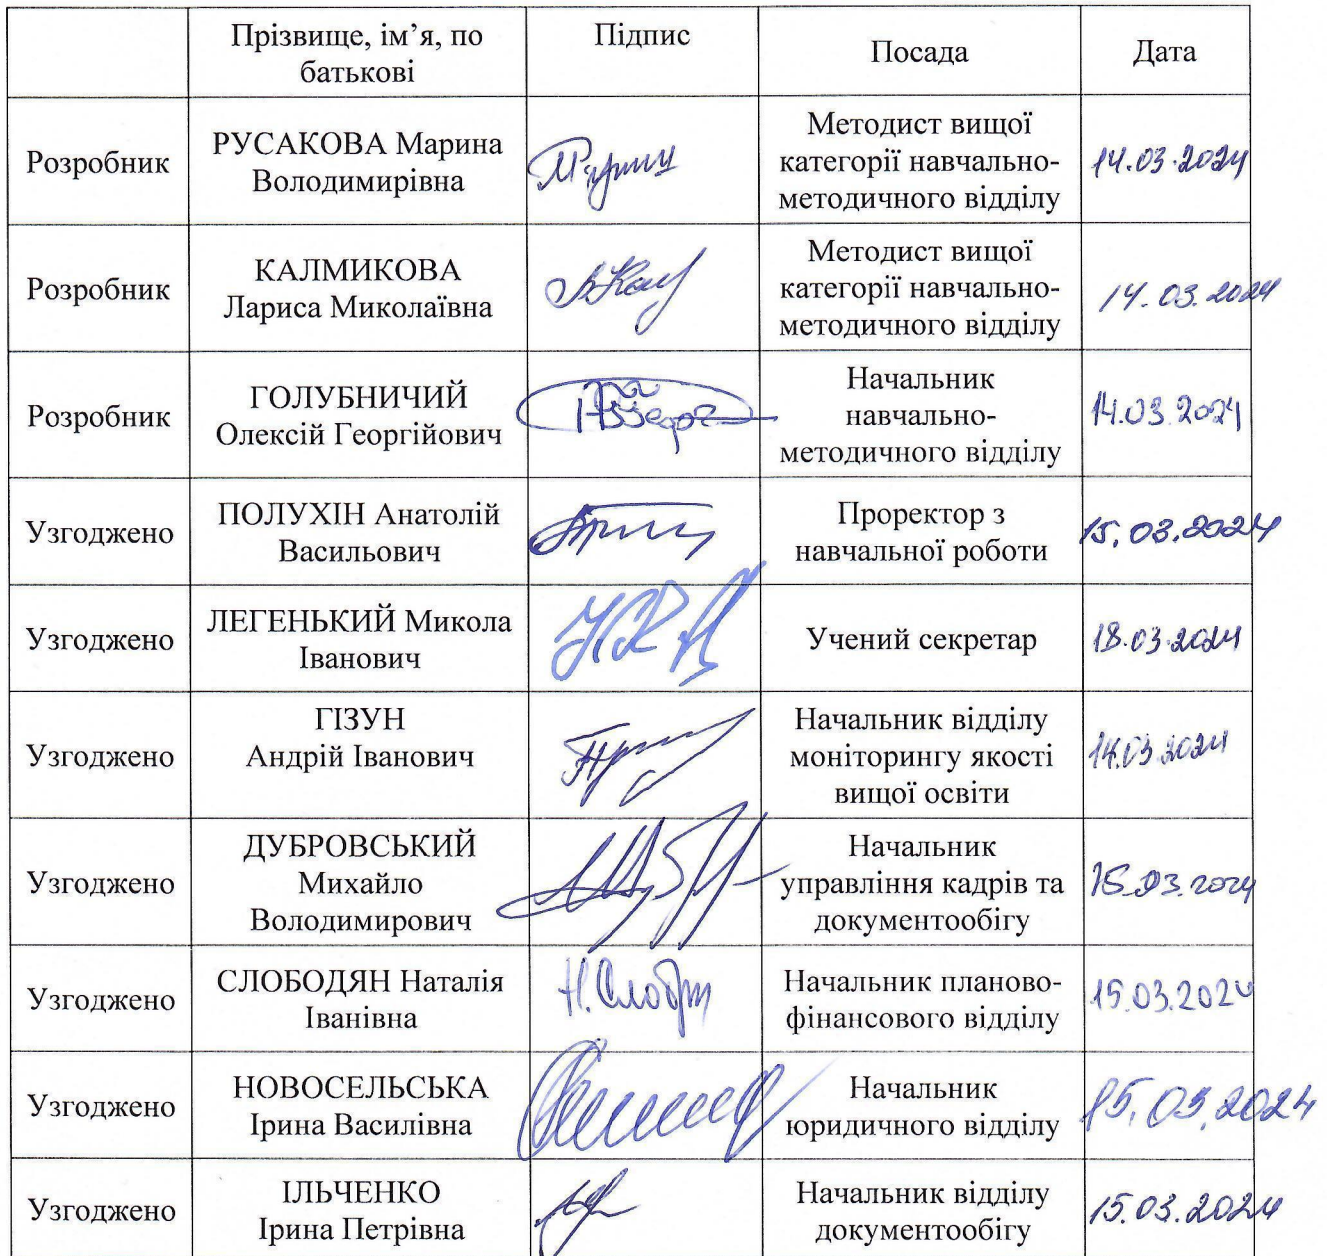 Прізвище, ім’я, по
батькові
Підпис
Посада
Дата
Розробник
РУСАКОВА Марина
Володимирівна
Методист вищої
категорії навчально-
методичного відділу
14.03.2024
Розробник
КАЛМИКОВА
Лариса Миколаївна
Методист вищої
категорії навчально-
методичного відділу
14.03.2024
Розробник
ГОЛУБНИЧИЙ
Олексій Георгійович
Начальник
навчально-
методичного відділу
14.03.2024
Узгоджено
ПОЛУХІН Анатолій
Васильович
Проректор з
навчальної роботи
15.03.2024
Узгоджено
ЛЕГЕНЬКИЙ Микола
Іванович
Учений секретар
18.03.2024
Узгоджено
ГІЗУН
Андрій Іванович
Начальник відділу
моніторингу якості
вищої освіти
14.03.2024
Узгоджено
ДУБРОВСЬКИЙ
Михайло
Володимирович
Начальник
управління кадрів та
документообігу
15.03.2024
Узгоджено
СЛОБОДЯН Наталія
Іванівна
Начальник планово-
фінансового відділу
15.03.2024
Узгоджено
НОВОСЕЛЬСЬКА
Ірина Василівна
Начальник
юридичного відділу
15.03.2024
Узгоджено
ІЛЬЧЕНКО
Ірина Петрівна
Начальник відділу
документообігу
15.03.2024